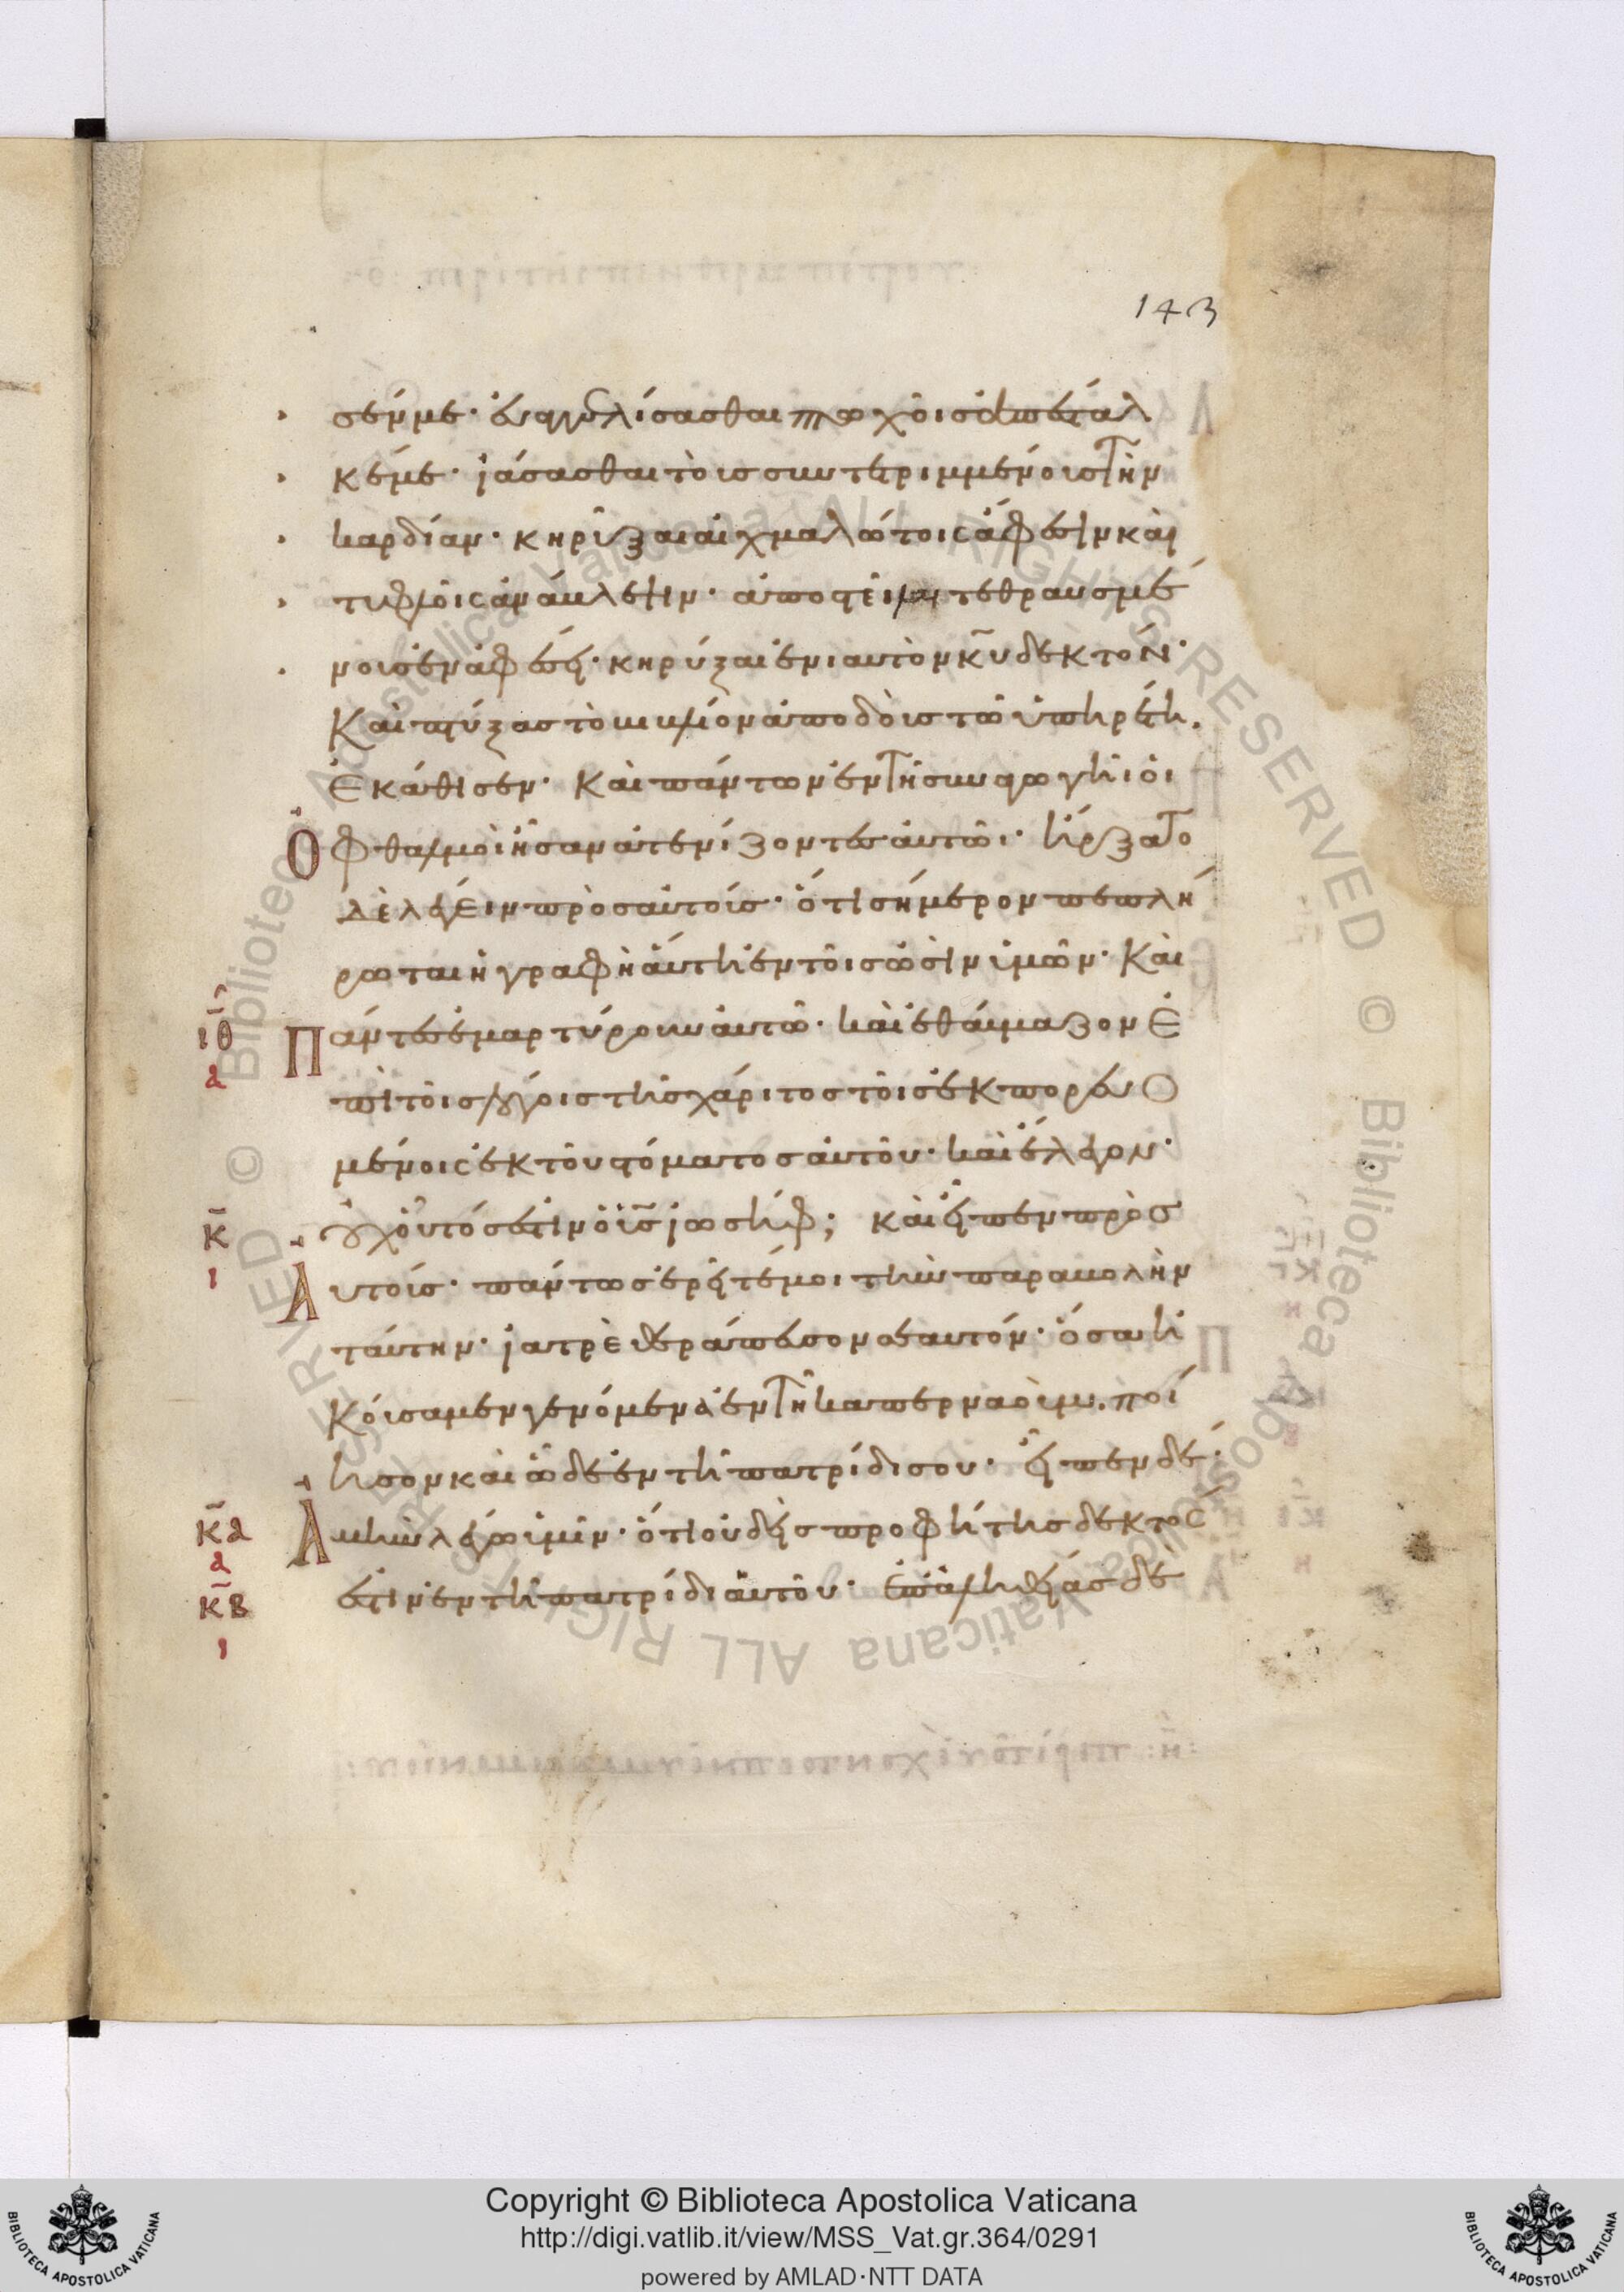 143
σέν με· ἐυαγγελίσασθαι πτωχοῖς ἀπέσταλ
κέ με· ἰάσασθαι τοὺς συντετριμμένους τὴν
καρδίαν· κηρῦξαι αἰχμαλώτοις ἄφεσιν καὶ
τυφλοῖς ἀνάβλεψιν· ἀποστεῖλαι τεθραυσμέ
νους ἐν ἀφέσει· κηρύξαι ἐνιαυτὸν κ̅υ δεκτόν·
Καὶ πτύξας τὸ βιβλίον ἀποδοὺς τῶ ὑπηρέτη.
Ἐκάθισεν· Καὶ πάντων ἐν τῆ συναγωγῆ· ὁι
Ὀφθαλμοὶ ἦσαν ἀτενίζοντες ἀυτῶ· ἤρξατο
δὲ λέγειν πρὸς αὐτούς· ὅτι σήμερον πεπλή
ρωται ἡ γραφὴ ἅυτη ἐν τοῖς ὠσὶν ὑμῶν· Καὶ
Πάντες ἐμαρτύρουν ἀυτῶ· καὶ ἐθάυμαζον Ἐ
πὶ τοῖς λόγοις τῆς χάριτος τοῖς ἐκπορευο
μένοις ἐκ τοῦ στόματος ἀυτοῦ· καὶ ἔλεγον·
οὐχ οὗτός ἐστιν ὁ υ̅ς ἰωσήφ; καὶ εἶπεν πρὸς
Ἀυτούς· πάντως ἐρεῖτέ μοι τὴν παραβολὴν
ταύτην· ἰατρὲ θεράπευσον σεαυτόν· ὅσα ἠ
Κούσαμεν γενόμενα ἐν τῆ καπερναοὺμ. ποί
ησον καὶ ὧδε ἐν τῆ πατρίδι σου· εἶπεν δέ·
Ἀμὴν λέγω ὑμῖν· ὅτι οὐδεὶς προφήτης δεκτός
ἐστιν ἐν τῆ πατρίδι ἀυτοῦ· Ἐπ' ἀληθείας δὲ
ι̅θ
α
κ̅
ι
κ̅α
α
κ̅β
ι
Copyright © Biblioteca Apostolica Vaticana
http://digi.vatlib.it/view/MSS_Vat.gr.364/0291
powered by AMLAD·NTT DATA
BIBLIOTECA APOSTOLICA VATICANA
BIBLIOTECA APOSTOLICA VATICANA
© Biblioteca Apostolica Vaticana ALL RIGHTS RESERVED © Biblioteca Apostolica Vaticana ALL RIGHTS RESERVED